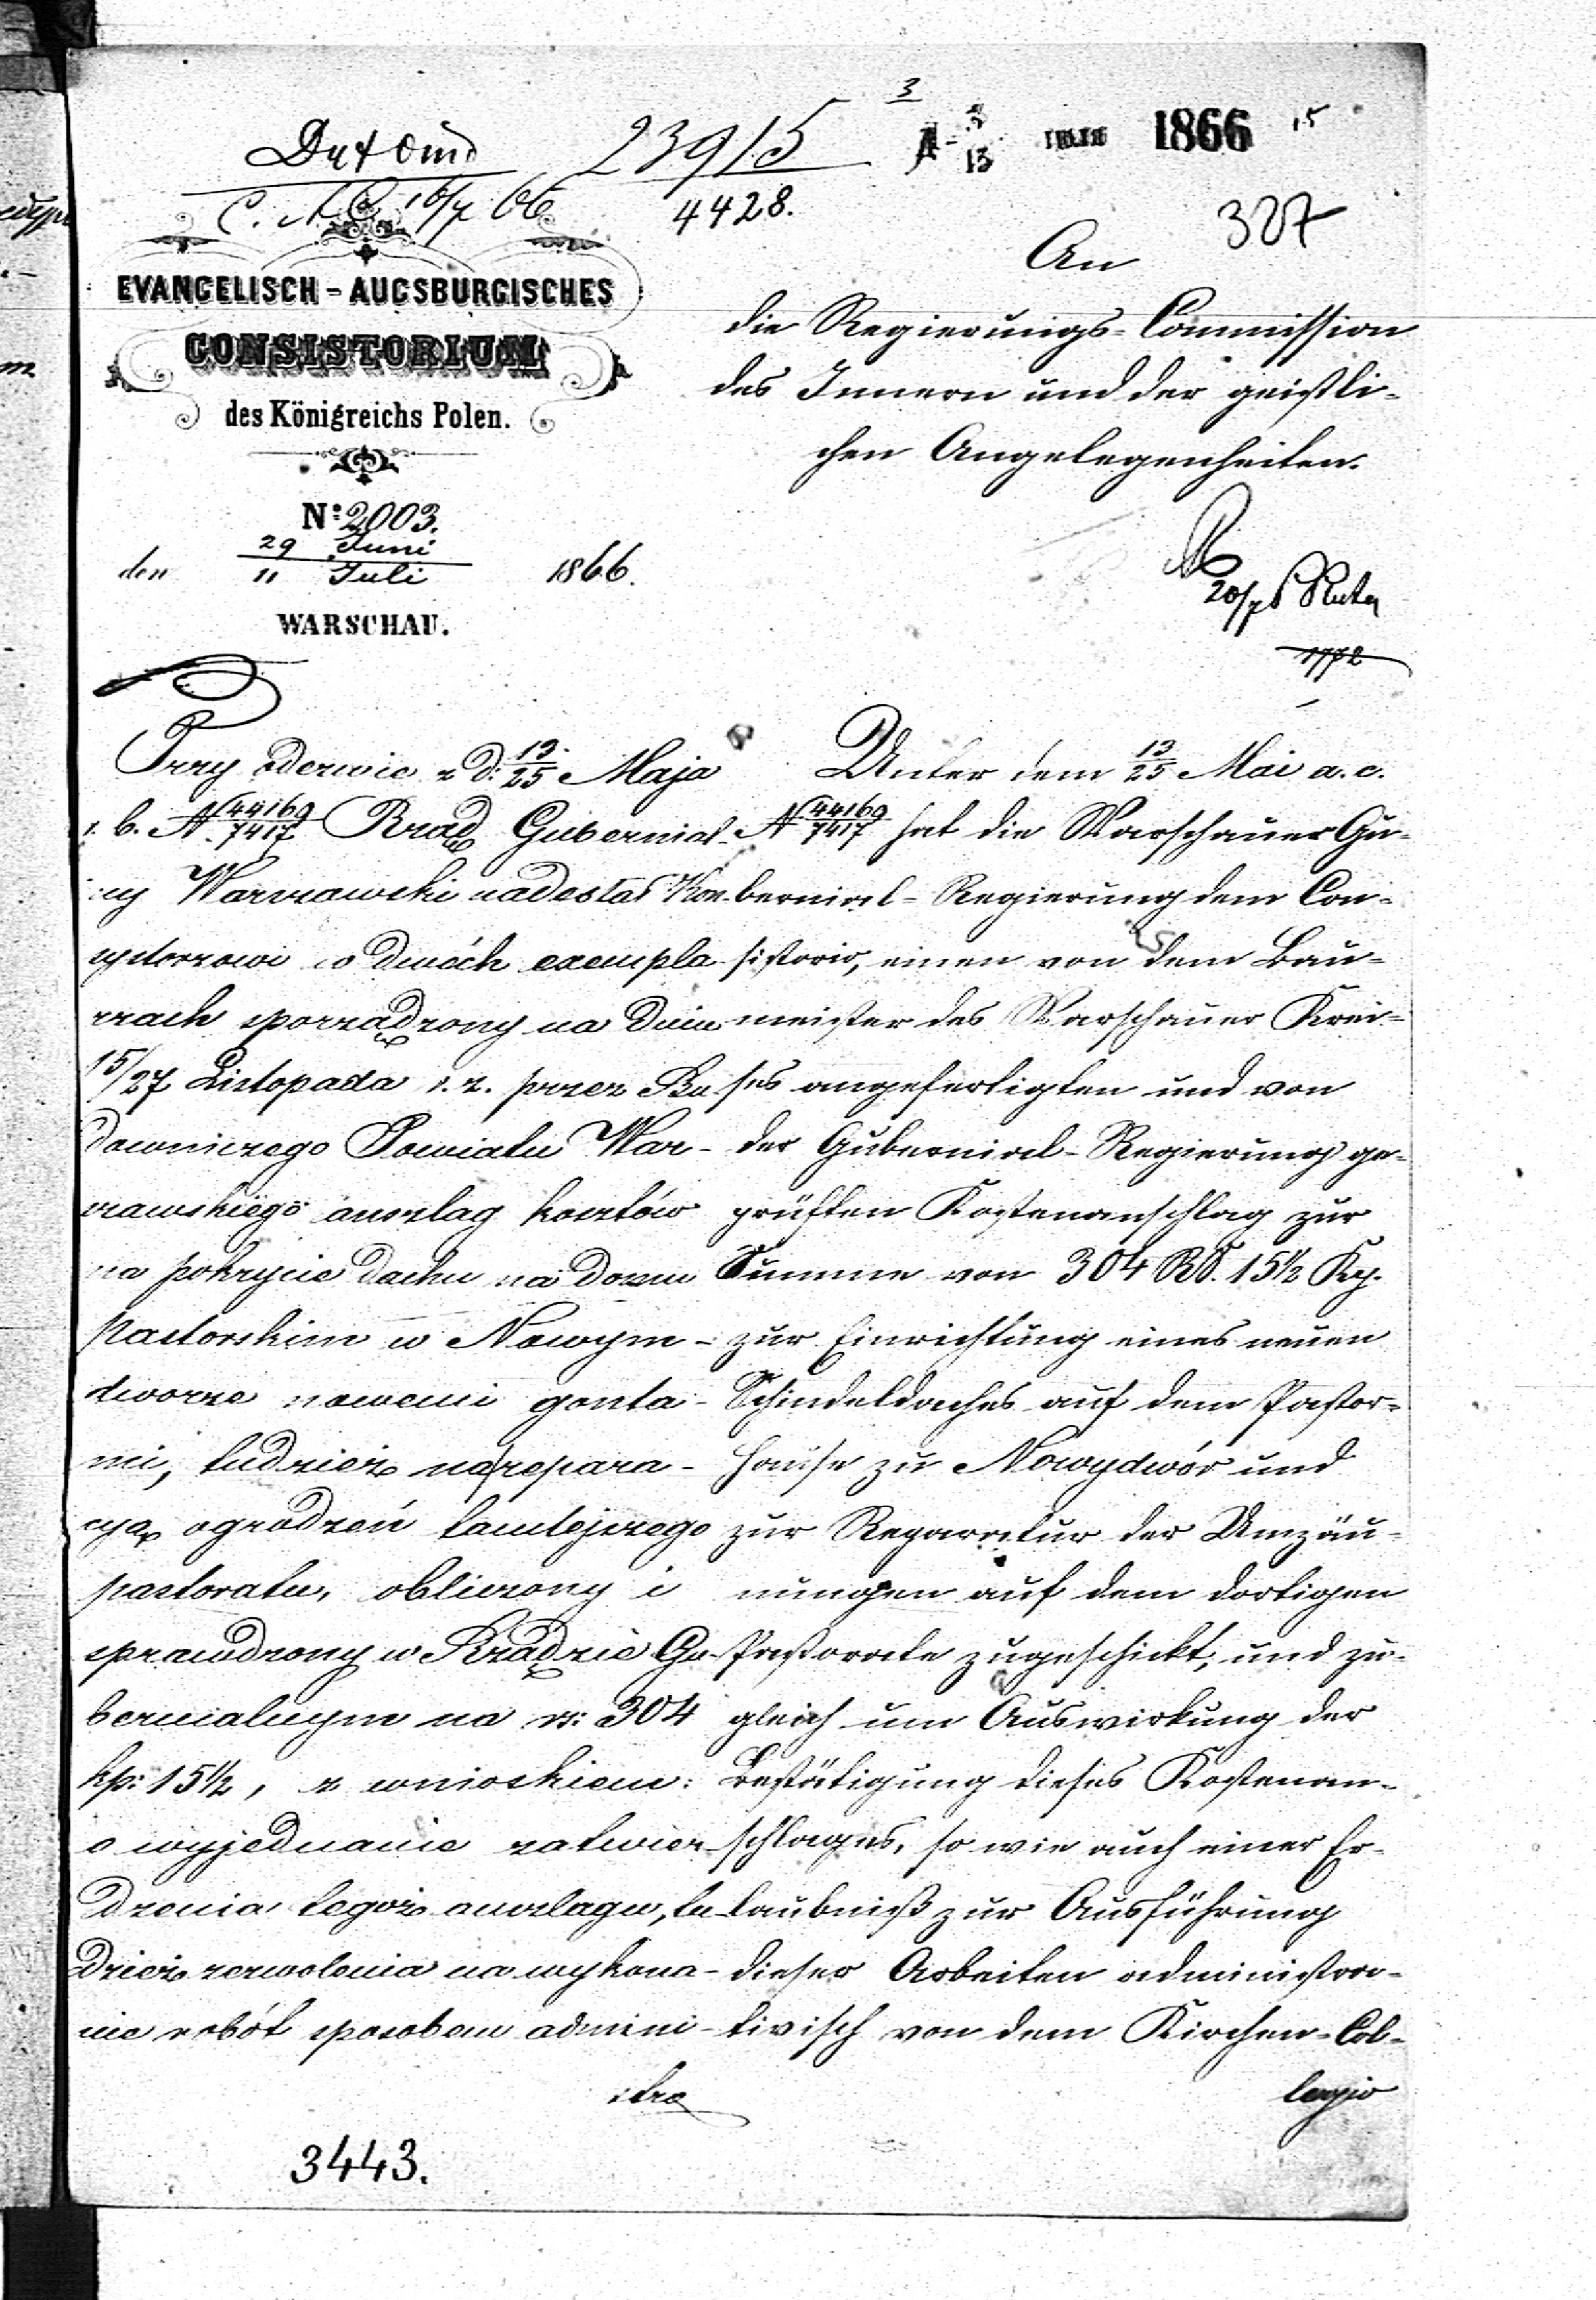 3
23915
4428.
1866
15
16/7 66
387
An
EVANGELISCH-AUGSBURGISCHES
CONSISTORIUM
des Königreichs Polen.
die Regierungs-Commission
des Innern und der geistli-
chen Angelegenheiten.
Nº 2003.
den 29 Juni / 11 Juli 1866.
WARSCHAU.
20/7
1772
Przy odezwie z d: 13/25 Maja
r. b. N 44169/7417 Rząd Gubernial-
ny Warszawski nadesłał Kon-
systorzowi w dwóch exempla-
rzach sporządzony na dniu
15/27 Listopada r. z. przez Bu-
downiczego Powiatu War-
szawskiego anszlag kosztów
na pokrycie dachu na domu
Pastorskim w Nowym-
dworze nowemi gonta-
mi, tudzież na repara-
cyą ogrodzeń tamtejszego
pastoratu, obliczony i
sprawdzony w Rządzie Gu-
bernialnym na rs: 304
kp: 15½, z wnioskiem:
o wyjednanie zatwier-
dzenia tegoż anszlagu, tu-
dzież zezwolenia na wykona-
nie robót sposobem admini-
stra
Unter dem 13/25 Mai a. c.
N 44169/7417 hat die Warschauer Gu-
bernial-Regierung dem Con-
sistorio, einen von dem Bau-
meister des Warschauer Krei-
ses angefertigten und von
der Gubernial-Regierung ge-
prüften Kostenanschlag zur
Summe von 304 RS. 15½ Kp.
zur Einrichtung eines neuen
Schindeldaches auf dem Pastor-
Hause zu Nowydwór und
zur Reparatur der Umzäu-
nungen auf dem dortigen
Pastorate zugeschickt, und zu-
gleich um Auswirkung der
Bestätigung dieses Kostenan-
schlages, so wie auch einer Er-
laubniß zur Ausführung
dieser Arbeiten administra-
tivisch von dem Kirchen-Col-
legio
3443.